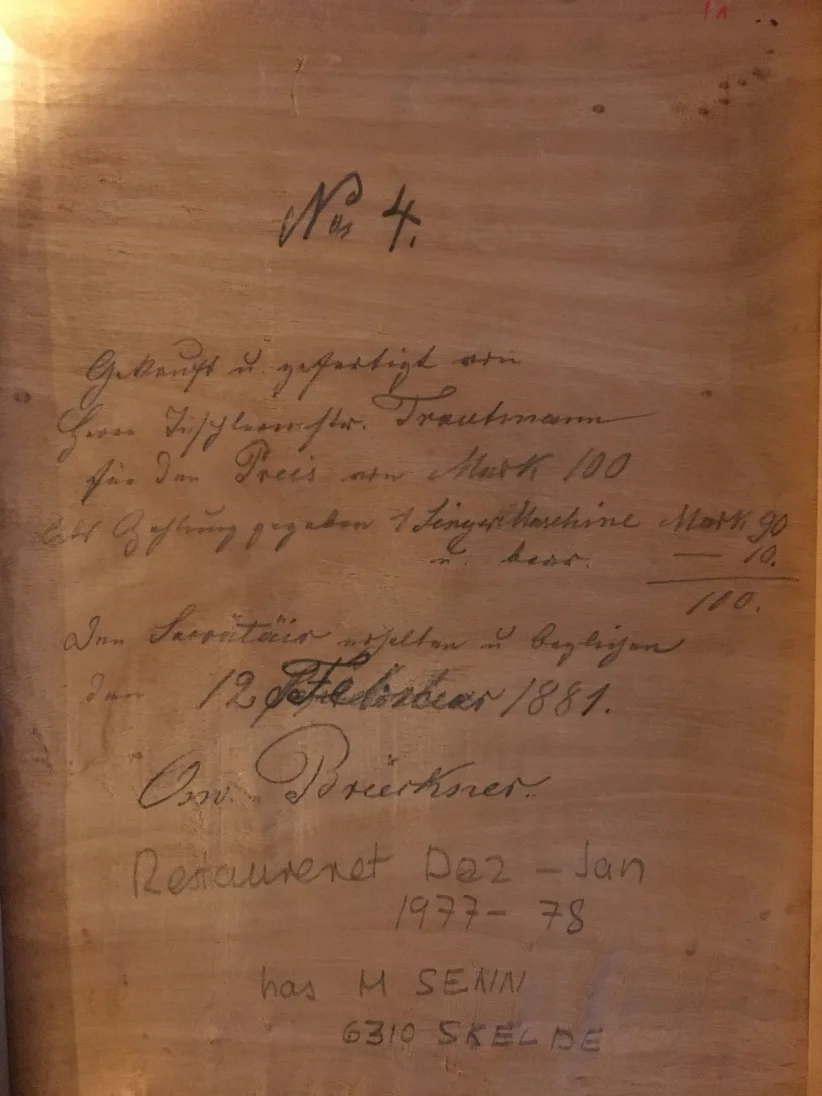 No 4.
Gekauft u. gefertigt von
Herrn Tischlermstr. Trautmann
für den Preis von Mark 100
Als Zahlung gegeben 1 Singer Maschine Mark 90
u. baar. — 10.
100.
Den Secretair erhalten u beglichen
den 12 Februar 1881.
Osw. Brückner.
Restaureret Dez - Jan
1977 - 78
hos M SENN
6310 SKELDE